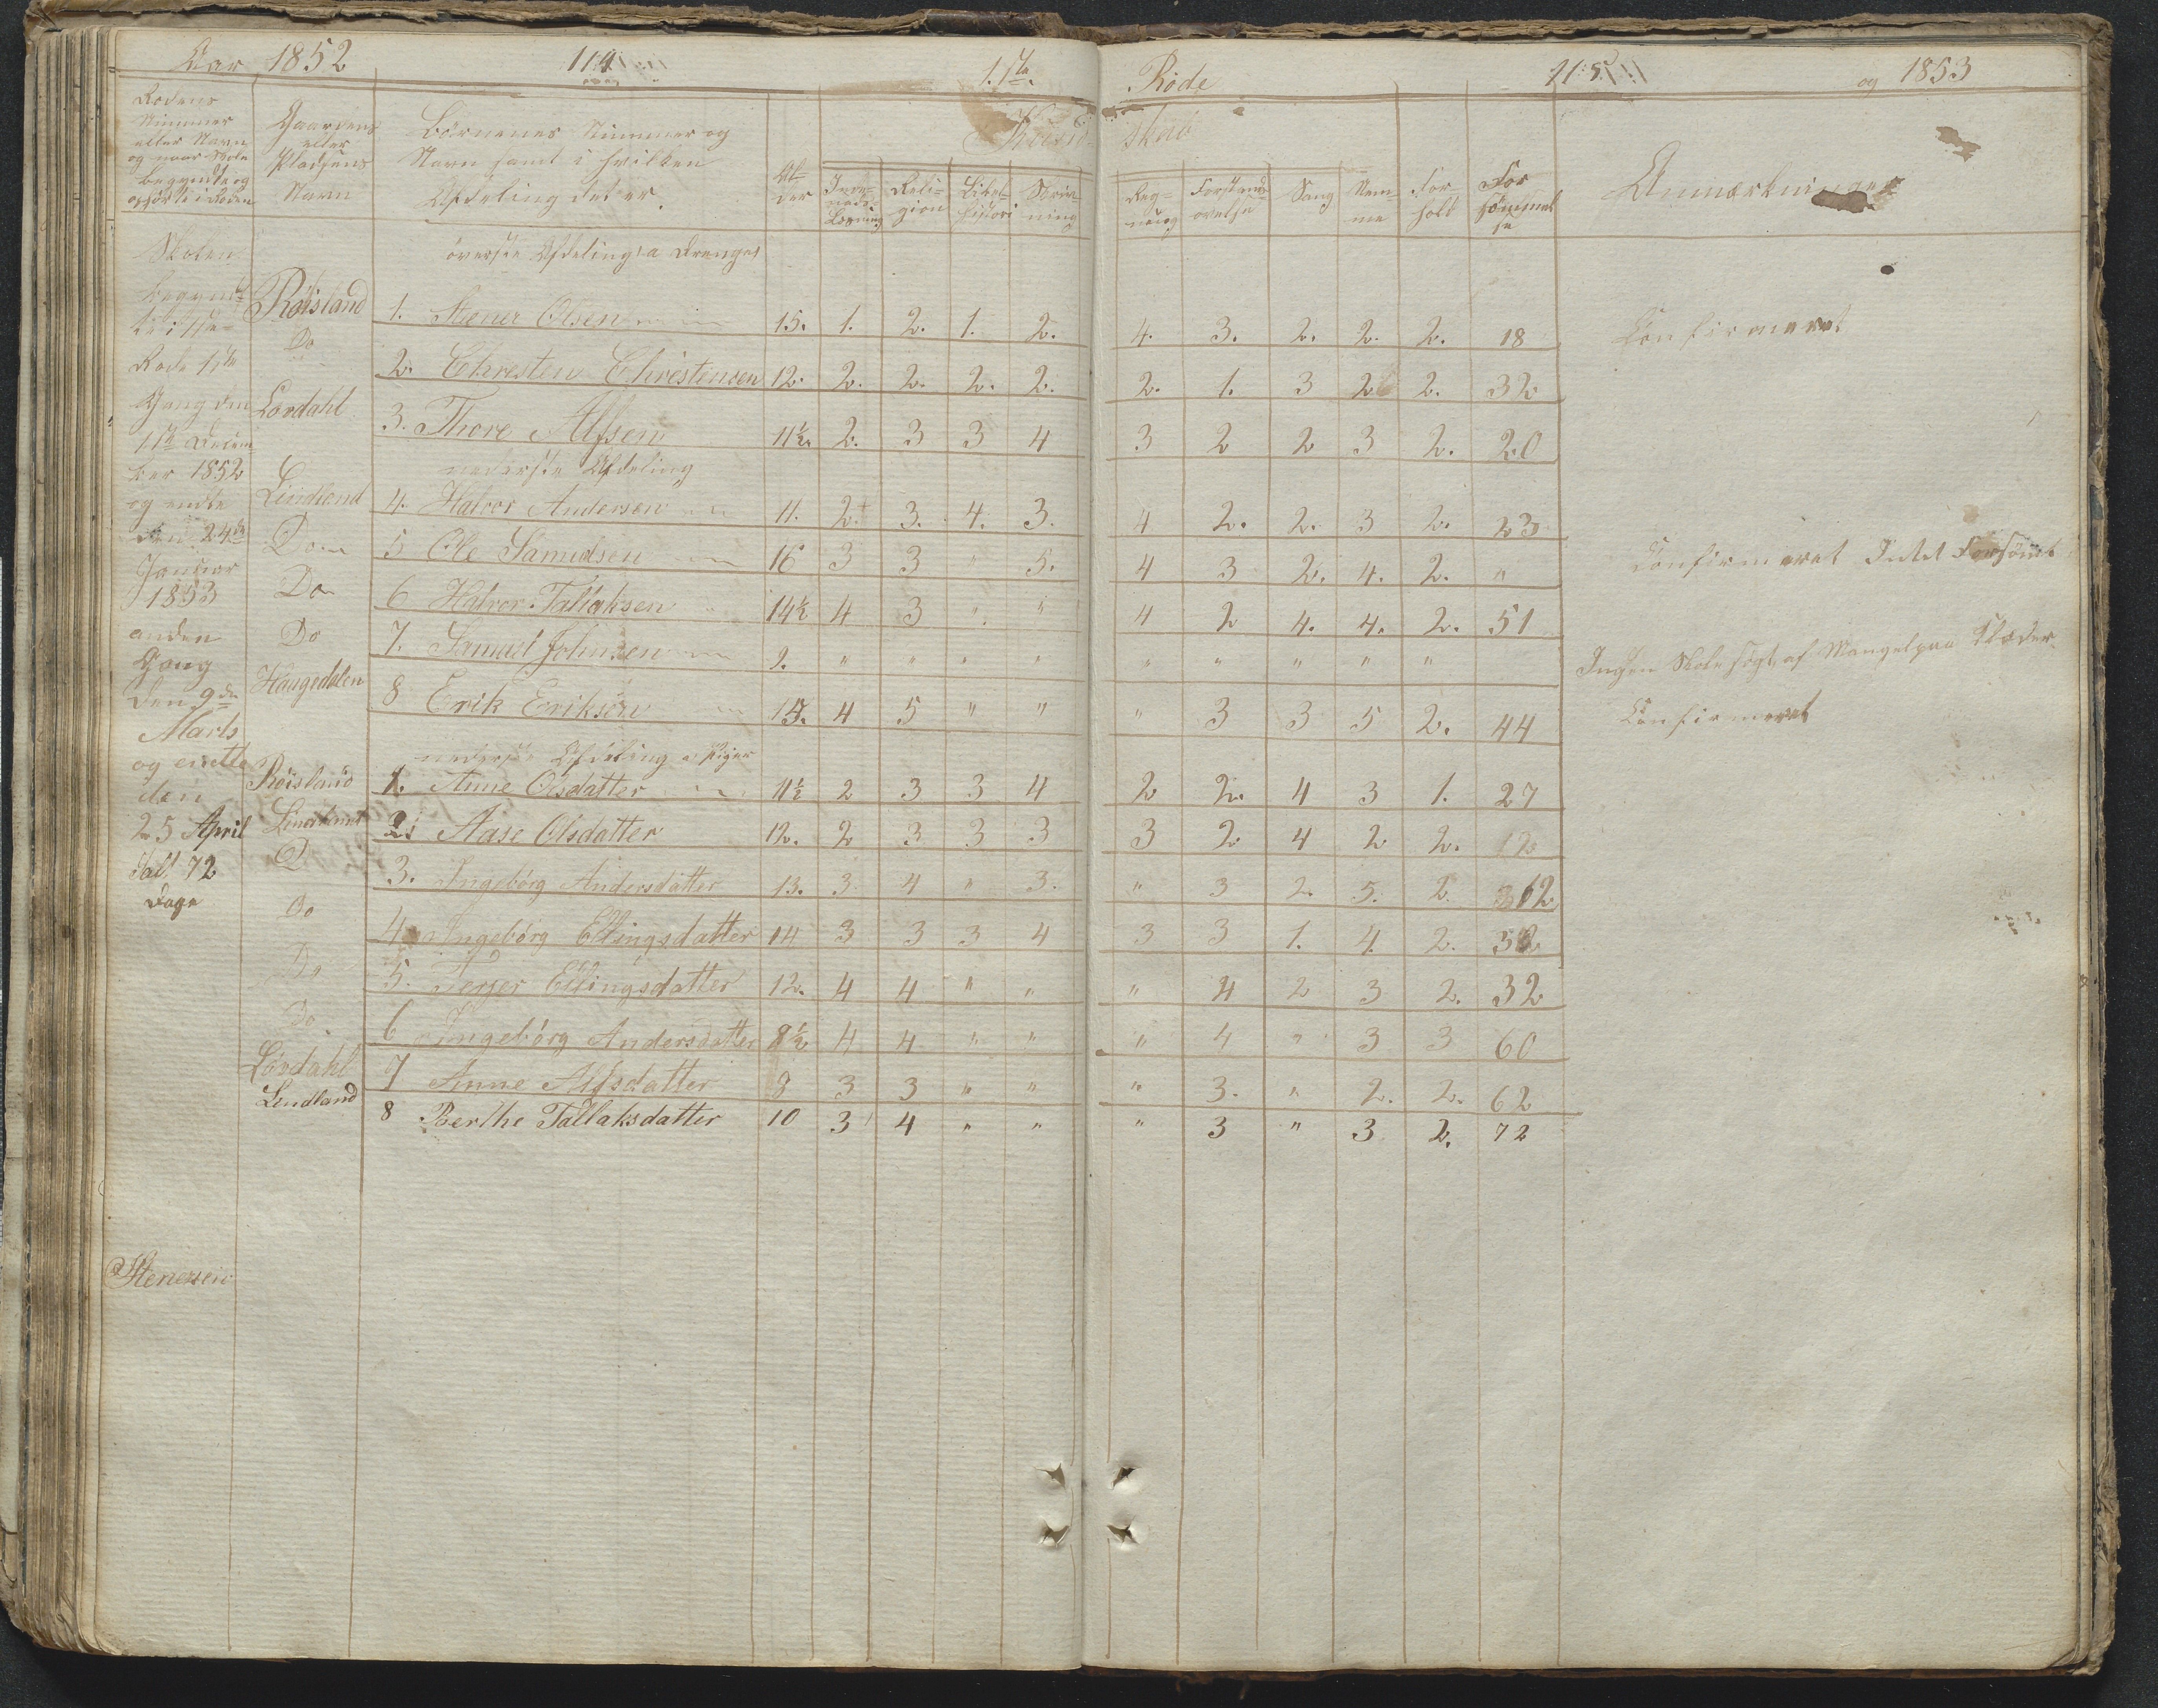 Aar 1852 114 1.ste Rode 115 og 1853
Rodens Nummer eller Navn og naar Skolen begyndte og ophørte i Roden
Gaardens eller Pladsens Navn
Börnenes Nummer og Navn samt i hvilken Afdeling det er.
Al-der
Religion
Bibel-histori
Skriv-ning
Reg-ning
Forstands-øvelse
Sang
Nem-me
For-hold
For-sömmel-se
Anmærkninger
Skolen begyndte i 1ste Rode 1ste Gang den
December 1852 og endte den 24de Januar 1853
anden Gang den 9de Marts og endte den 25 April
Talt 72 Dage
överste Afdeling a Drenge
Röisland 1. Stener Olsen 15. 1. 2. 1. 2. 4. 3. 2. 2. 2. 18 Confirmeret
Do 2. Chresten Chrestensen 12. 2. 2. 2. 2. 2. 1. 3 2 2. 32
Lovdahl 3. Thore Alfsen 11½. 2. 3 3 4 3 2 2 3 2. 20
nederste Afdeling
Lindland 4. Halvor Andersen 11. 2. 3. 4. 3. 4 2. 2. 3 2. 23
Do 5 Ole Samuelsen 16 3 3 " 5. 4 3 2. 4. 2. " Confirmeret Intet Forsömt
Do 6 Halvor Tallaksen 14½ 4 3 " " 4 2 4. 4. 2. 51
Do 7. Samuel Johnsen 9. " " " " " " " " " Ingen Skole sögt af Mangel paa Klæder
Haugedalen 8 Erik Eriksen 15. 4 5 " " " 3 3 5 2. 44 Confirmeret
nederste Afdeling a Piger
Röisland 1. Anne Olsdatter 11½ 2 3 3 4 2 2. 4 3 1. 27
Lindland 2. Aase Olsdatter 12. 2 3 3 3 3 2 4 2 2. 12
D 3. Ingebörg Andersdatter 13. 3 4 " 3. " 3 2. 5. 2 62
Do 4 Ingebörg Ellingsdatter 14 3 3 3 4 3 3 1. 4. 2.
Do 5. Terjer Ellingsdatter 12. 4 4 " " " 4 2 3 2. 32
Do 6 Ingebörg Andersdatter 8½ 4 4 " " " 4 " 3 3 60
Lovdahl 7 Anne Alfsdatter 8 3 3 " " " 3. " 2. 2. 62
Lindland 8 Berthe Tallaksdatter 10 3 4 " " " 3 " 3 2. 72
Stenersen